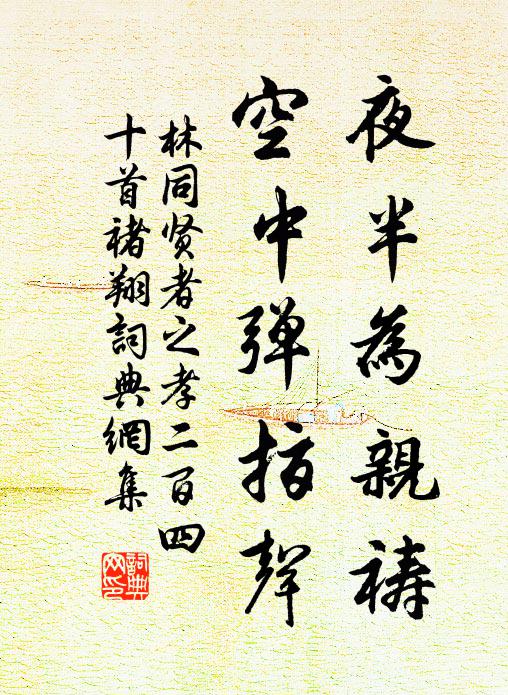 夜半為親禱
空中弹指聲
林同贤者之孝二百四
十首褚翔詞典網集
詞典
网印